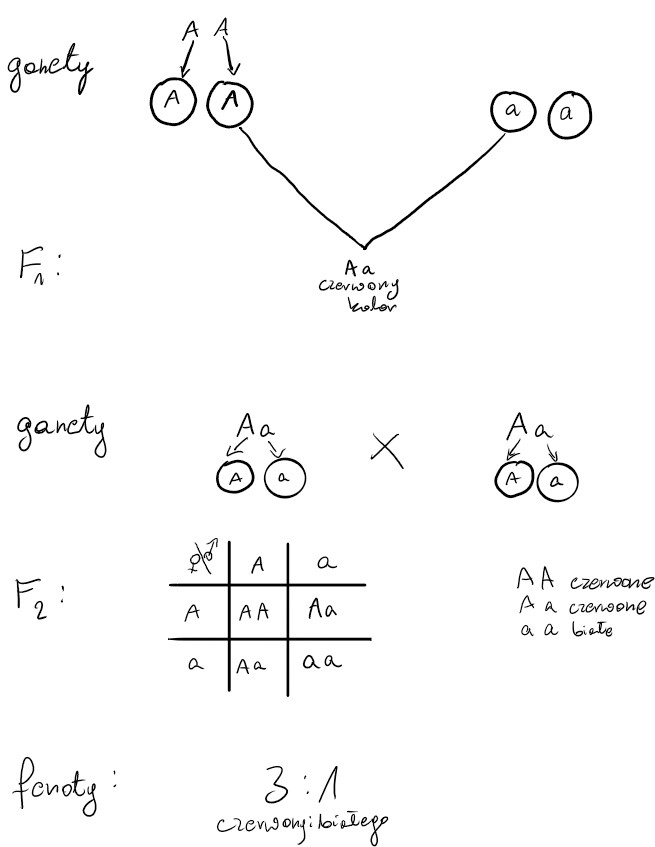 A A
gamety A A a a
F1:
Aa
czerwony
kolor
gamety Aa X Aa
A a A a
F2:
♀\♂ A a
A AA Aa
a Aa aa
AA czerwone
Aa czerwone
aa białe
fenoty: 3:1
czerwony:białego